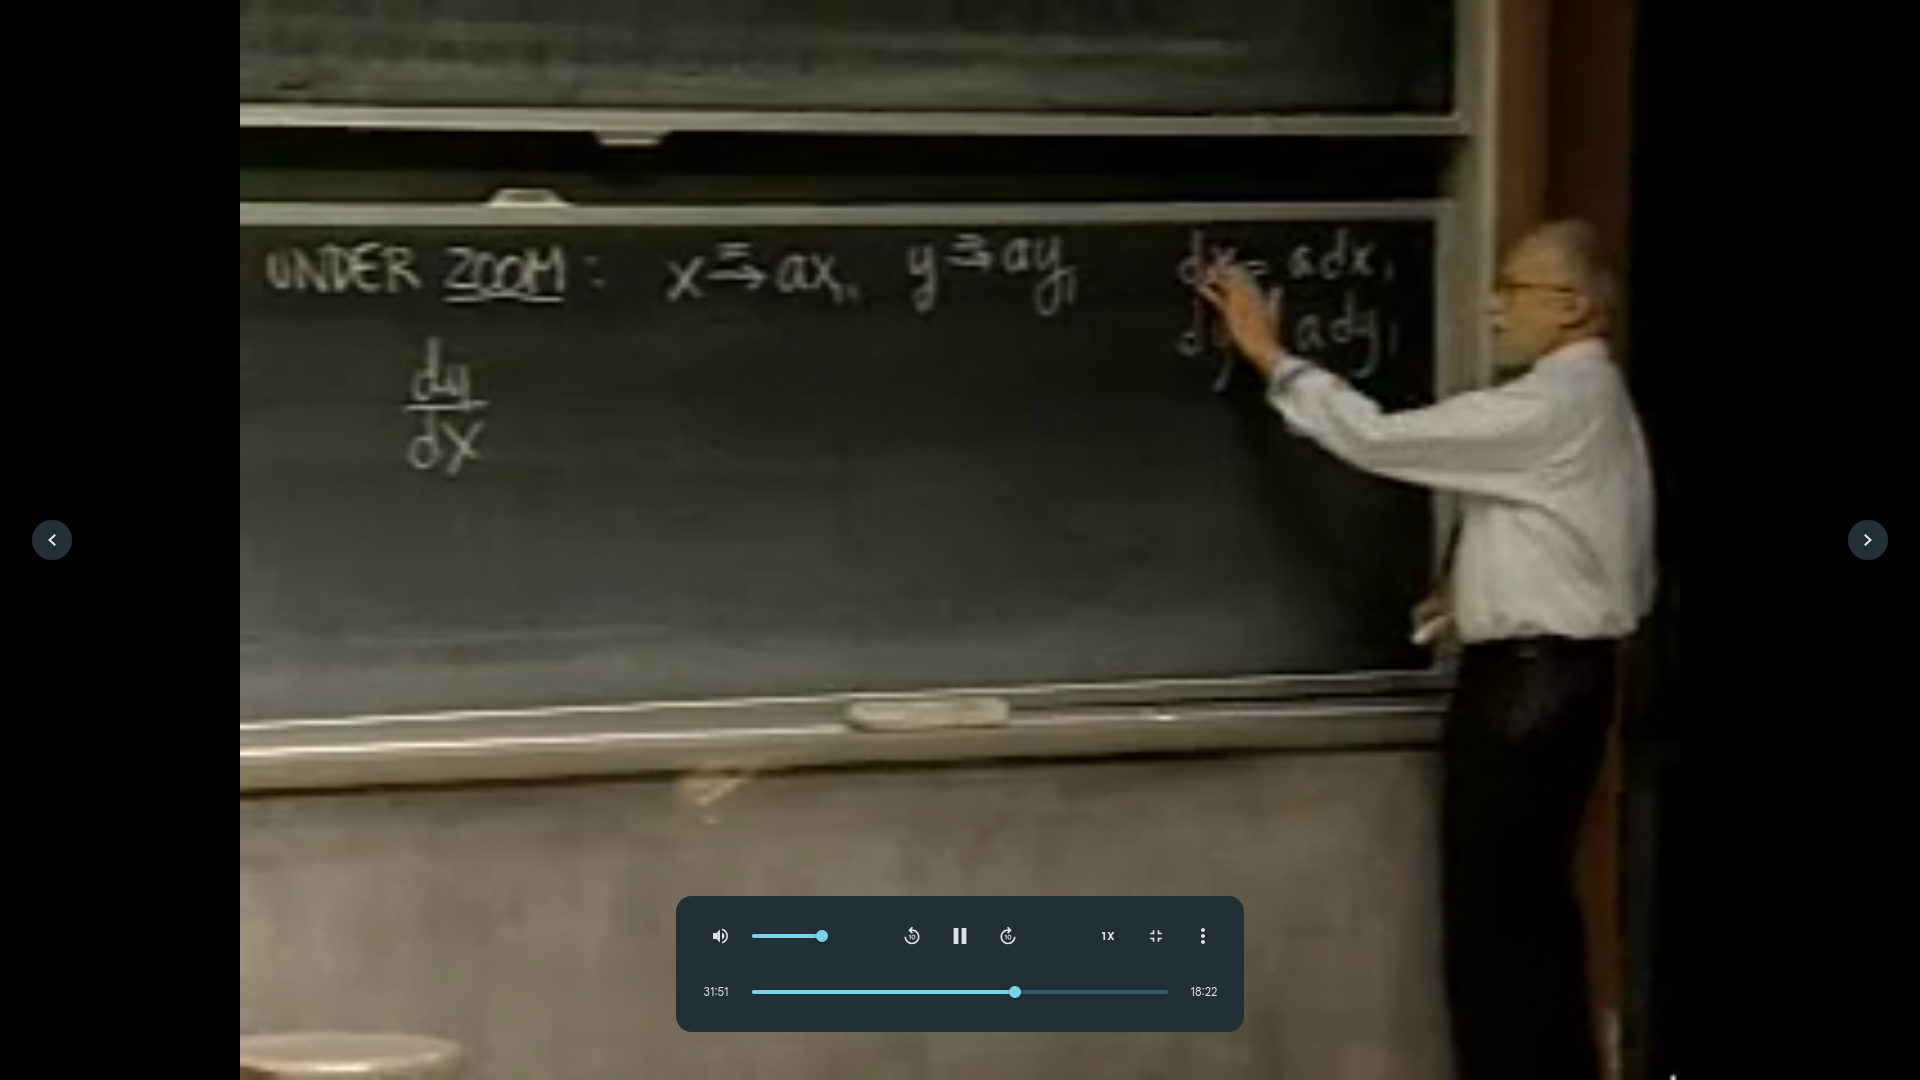 UNDER ZOOM: x ⇒ ax₁ y ⇒ ay₁ dx = adx₁
ady₁
dy
dx
1X
31:51 18:22